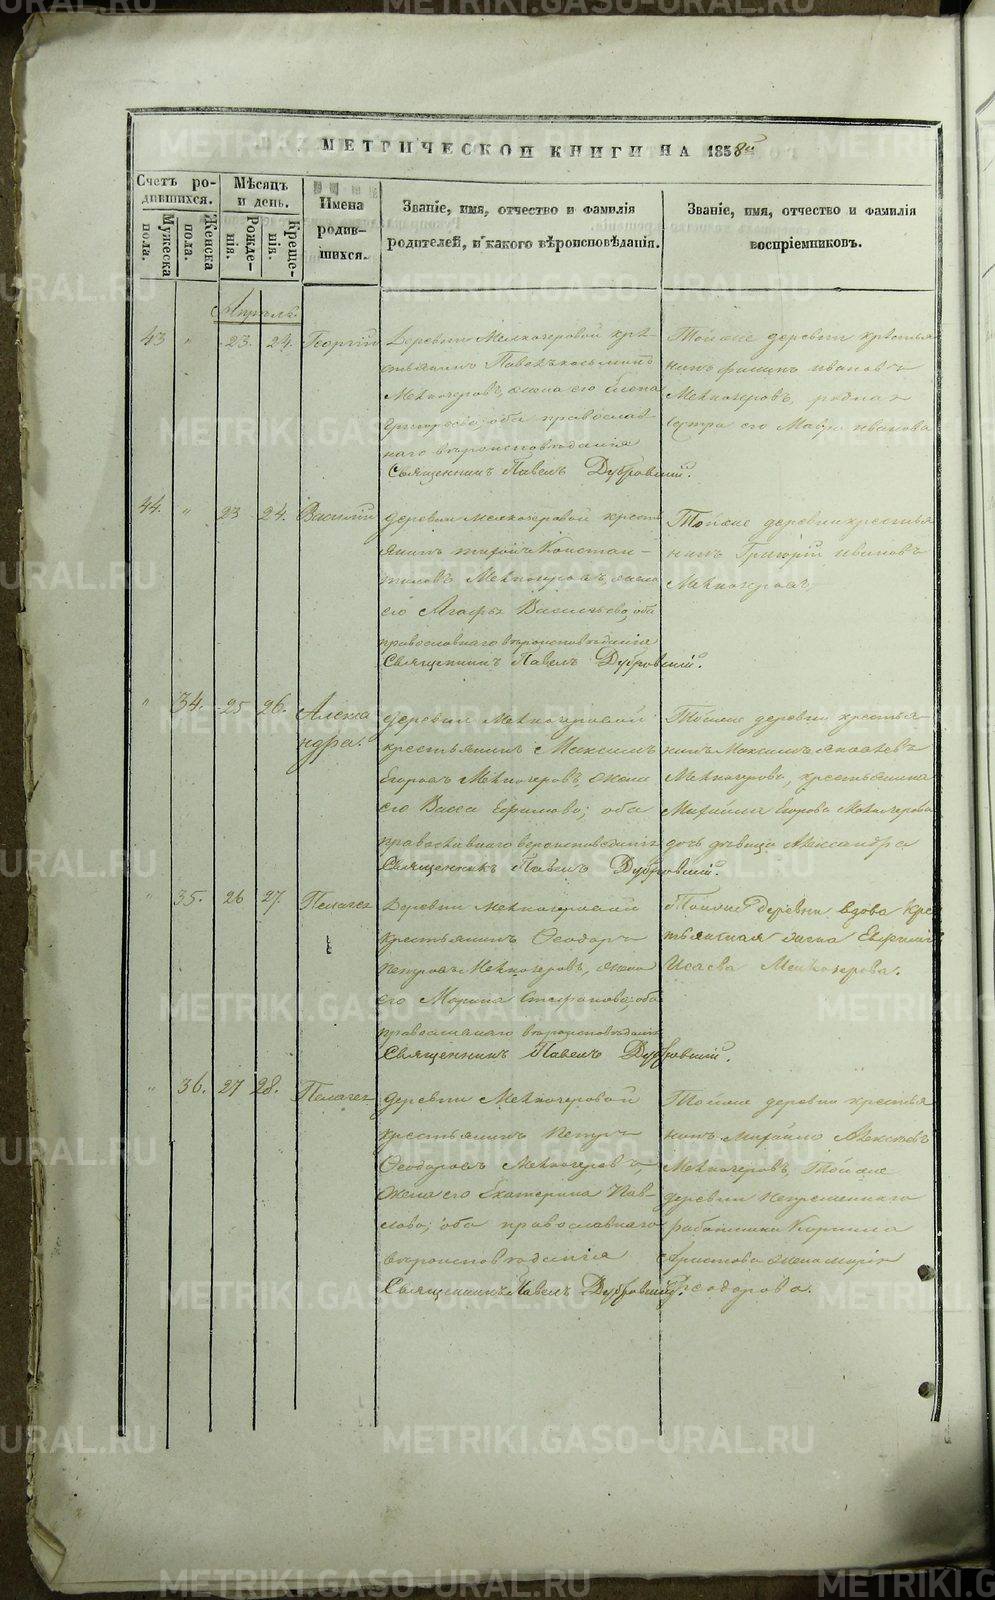 МЕТРИЧЕСКОЙ КНИГИ НА 1858й
Счетъ ро-
дившихся.
Мужеска
пола.
Женска
пола.
Мѣсяцъ
и день.
Рожде-
нія.
Креще-
нія.
Имена
родив-
шихся.
Званіе, имя, отчество и фамилія
родителей, и какого вѣроисповѣданія.
Званіе, имя, отчество и фамилія
воспріемниковъ.
Апрѣль.
43 " 23. 24. Георгій
Деревни Мелкозеровой кре-
стьянинъ
Мелкозеровъ, жена его
Григорьева; оба православ
наго вѣроисповѣданія
Священникъ Павелъ Дубровскій.
Тойже деревни крестья
нинъ Филипъ Ивановъ
Мелкозеровъ, родная
сестра его Мавра Иванова
44. " 23 24. Василій
деревни Мелкозеровой кресть
янинъ Константи-
новъ Мелкозеровъ, жена
его Агафья Васильева, оба
православнаго вѣроисповѣданія
Священникъ Павелъ Дубровскій.
Тойже деревни крестья
нинъ Григорій Ивановъ
Мелкозеровъ
" 34. 25 26. Алекса
ндра.
деревни Мелкозеровой
крестьянинъ Максимъ
Егоровъ Мелкозеровъ, жена
его Васса Ефимова; оба
православнаго вероисповеданія
Священникъ Павелъ Дубровскій.
Тойже деревни крестья-
нинъ Максимъ Яковлевъ
Мелкозерова, крестьянина
Михайла Егорова Мелкозерова
дочь дѣвица Александра
" 35. 26 27. Пелагея
Деревни Мелкозеровой
крестьянинъ Ѳеодоръ
Петровъ Мелкозеровъ, жена
его Марина Стефанова; оба
православнаго вѣроисповѣданія
Священникъ Павелъ Дубровскій.
Тойже деревни вдова кре
стьянская жена
Исаева Мелкозерова.
" 36. 27 28. Пелагея
деревни Мелкозеровой
крестьянинъ Петръ
Ѳеодоровъ Мелкозеровъ,
жена его Екатерина Пав-
лова; оба православнаго
вѣроисповѣданія
Священникъ Павелъ Дубровскій.
Тойже деревни крестья
нинъ Михайло Алексѣевъ
Мелкозеровъ, Тойже
деревни непременнаго
работника Кирила
Аристова жена Марія
Ѳеодорова.
METRIKI.GASO-URAL.RU